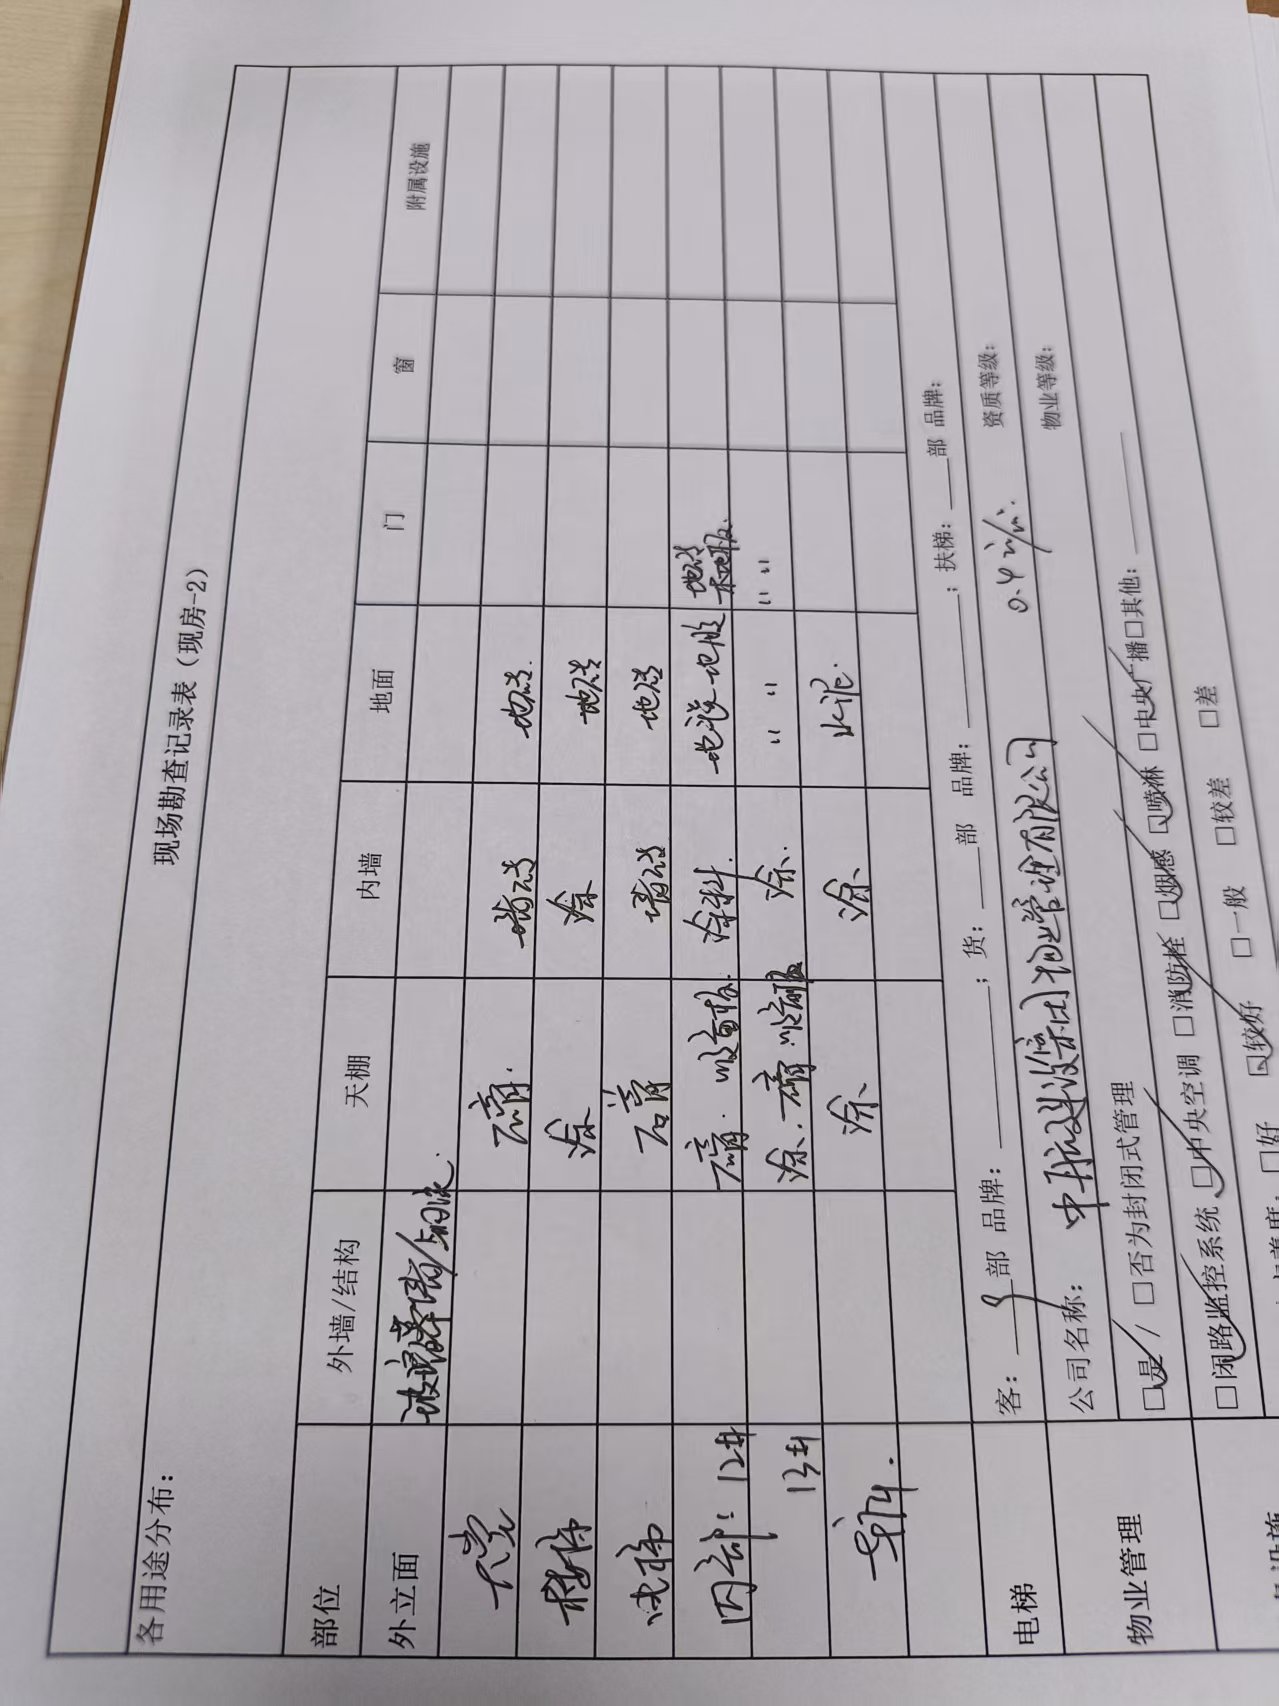 现场勘查记录表（现房-2）
各用途分布：
部位 外墙/结构 天棚 内墙 地面 门 窗 附属设施
外立面 玻璃幕墙/
大堂 石膏. 墙砖 地砖.
楼梯 涂 涂 地砖
电梯 石膏 墙砖 地砖
内部：12# 石膏. 吸音板. 涂料. 地毯 地胶 地砖
木地板.
13# 涂. 石膏 涂. 〃 〃
车库. 涂 涂 水泥.
电梯 客： 部 品牌： ；货： 部 品牌： ；扶梯： 部 品牌：
物业管理 公司名称：中航建设集团物业管理有限公司 0.4 资质等级：
☑是/□否为封闭式管理 物业等级：
☑闭路监控系统 ☑中央空调 □消防栓 ☑烟感 ☑喷淋 □中央广播□其他：
□好 ☑较好 □一般 □较差 □差